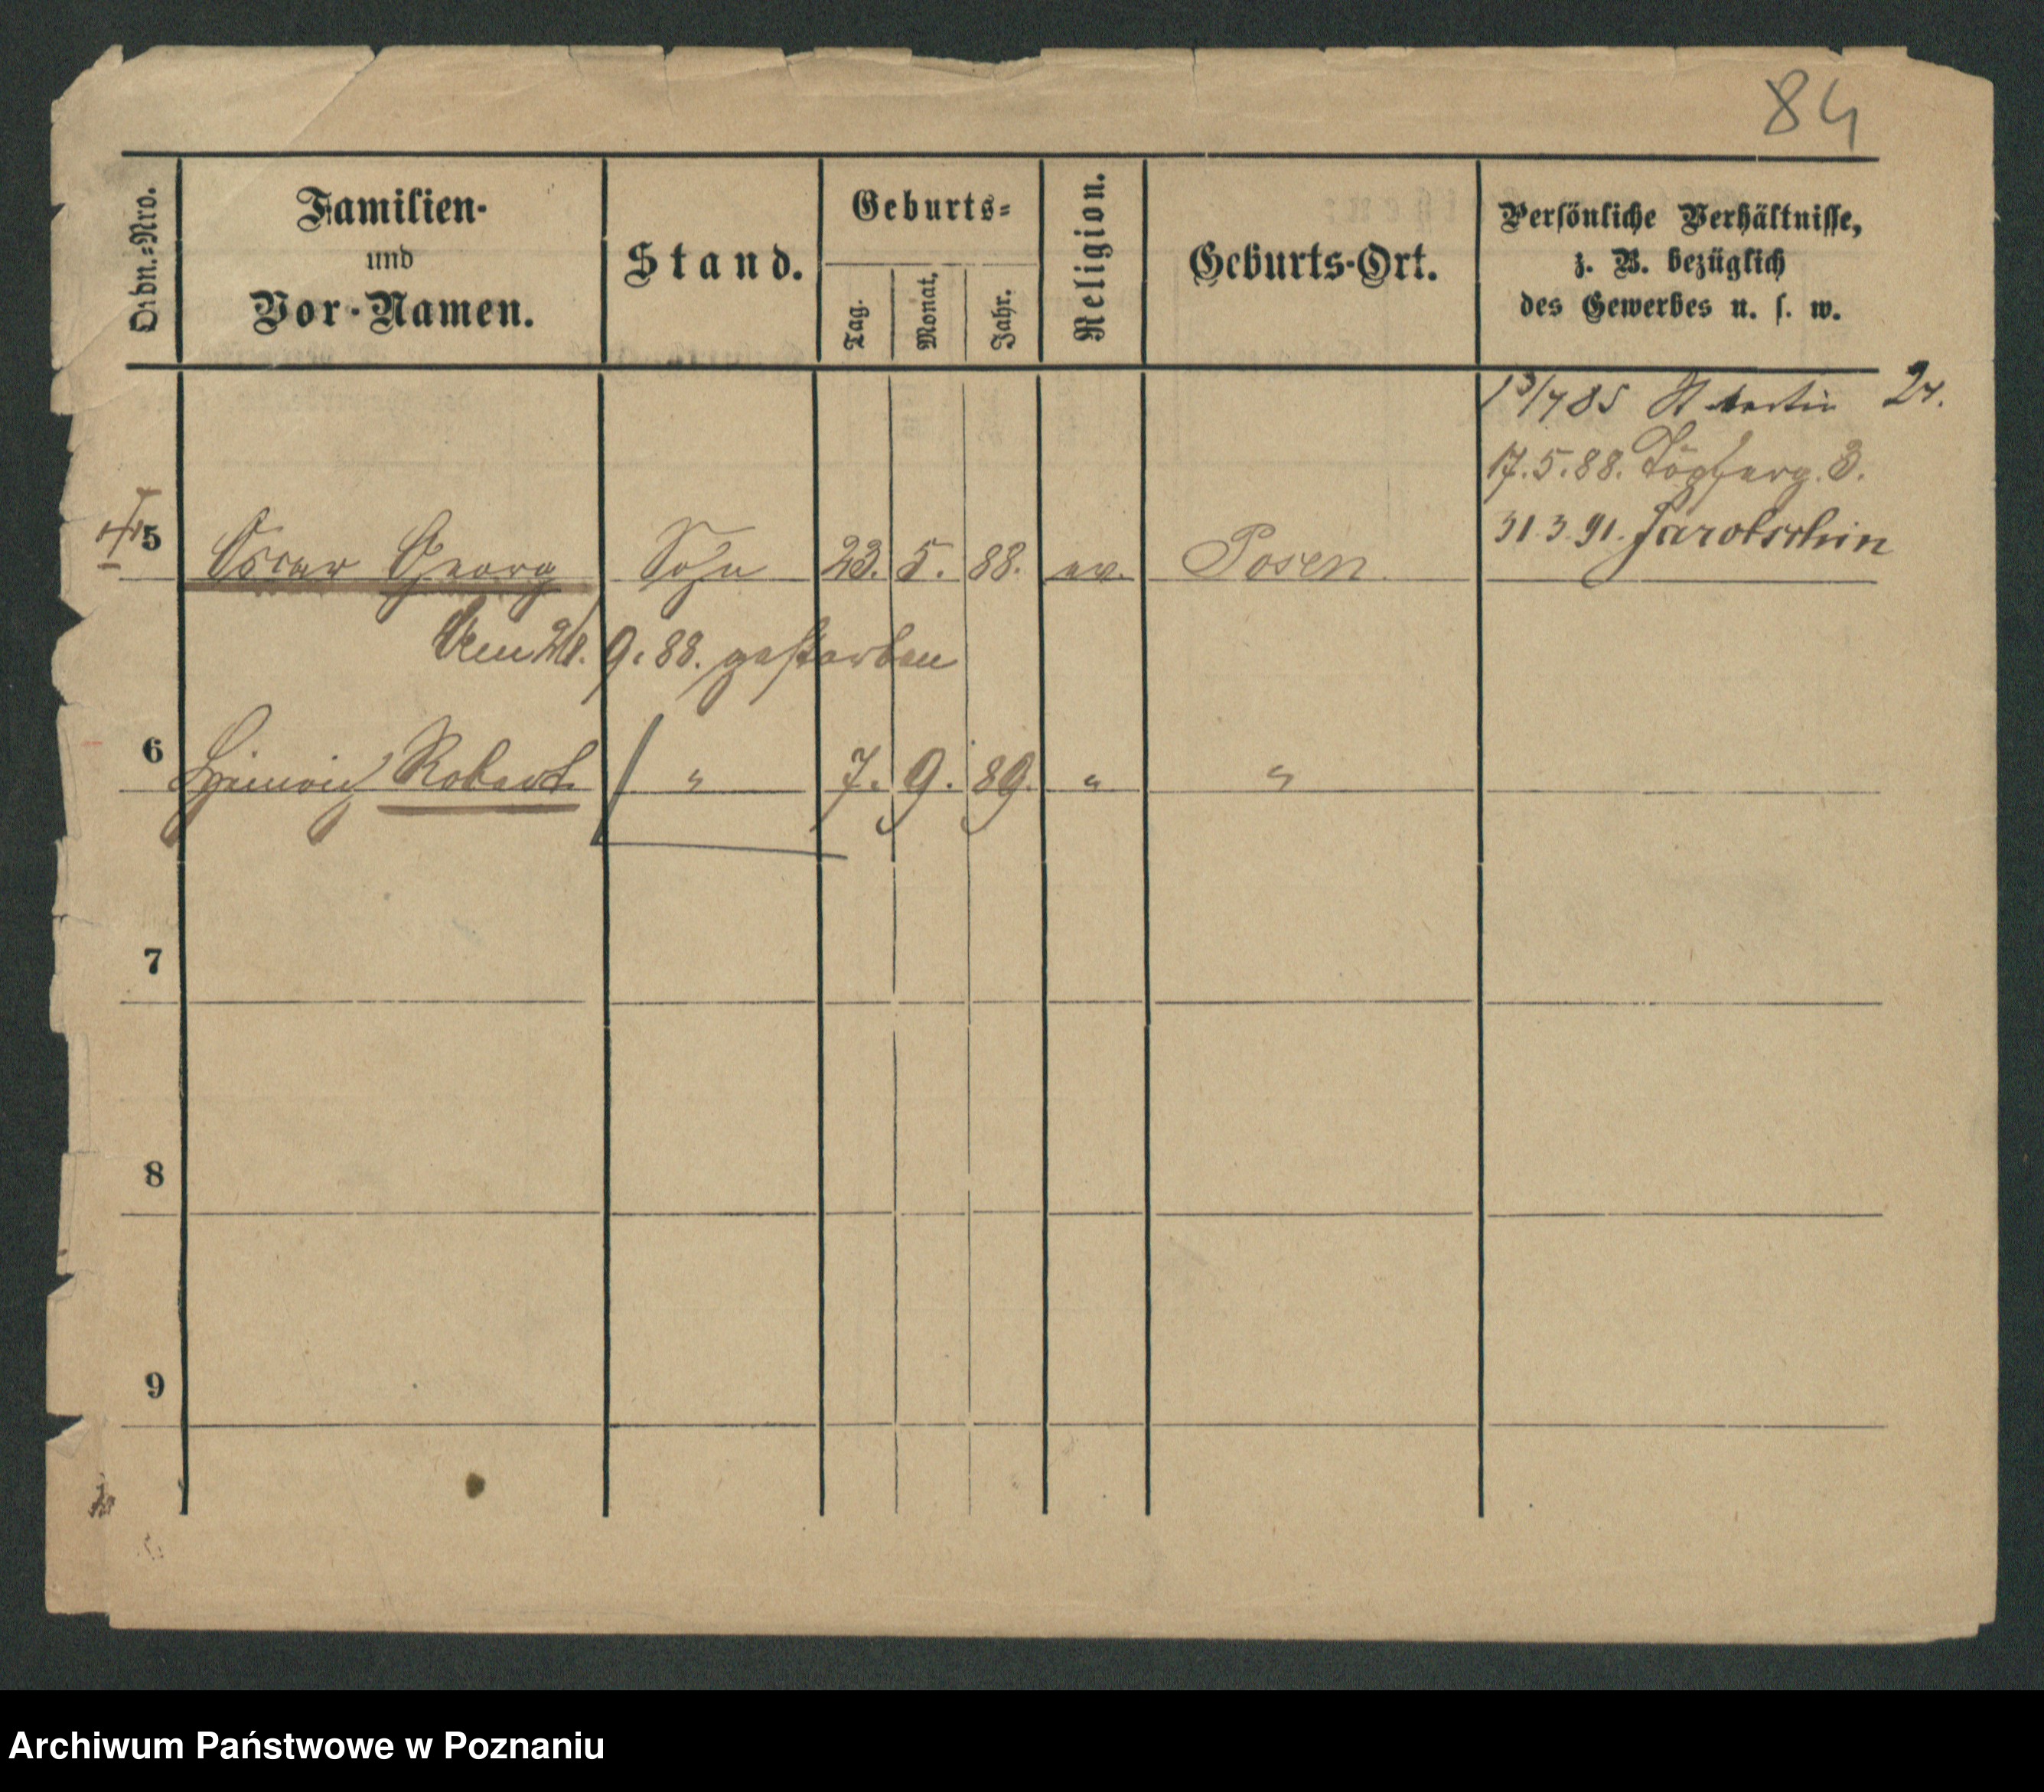 84
Ordn.-Nro.
Familien-
und
Vor-Namen.
Stand.
Geburts-
Tag.
Monat.
Jahr.
Religion.
Geburts-Ort.
Persönliche Verhältnisse,
z. B. bezüglich
des Gewerbes u. s. w.
13/7 85 St Martin 27.
17.5.88. Töpferg. 3.
31.3.91. Jarotschin
5 Oscar Georg Sohn 23. 5. 88. ev. Posen.
9. 88. gestorben
6 Heinrich Robert " 7. 9. 89. " "
7
8
9
Archiwum Państwowe w Poznaniu